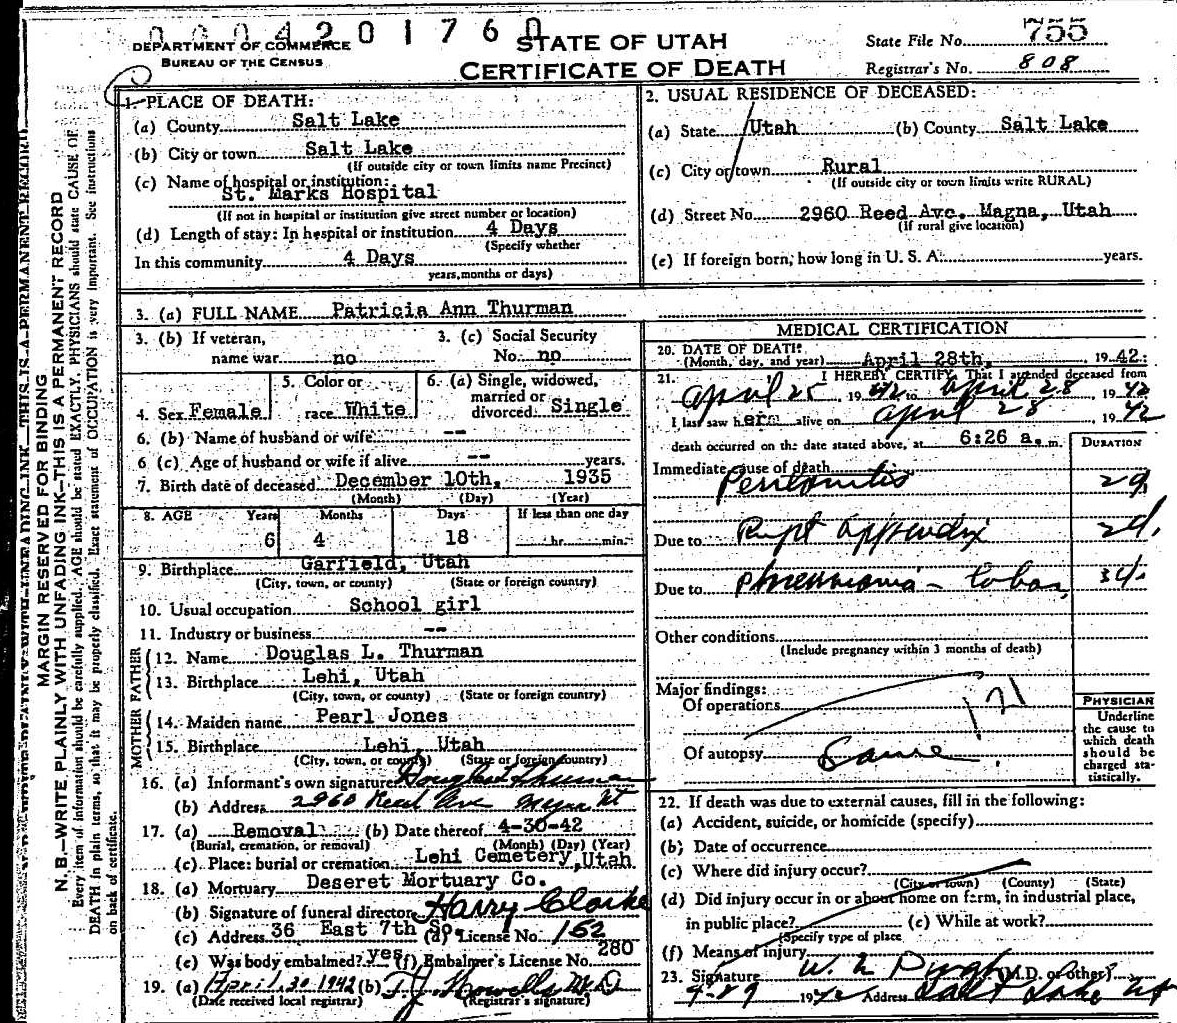 0004201760
DEPARTMENT OF COMMERCE
BUREAU OF THE CENSUS
STATE OF UTAH
CERTIFICATE OF DEATH
State File No. 755
Registrar's No. 808
MARGIN RESERVED FOR BINDING
N. B.—WRITE PLAINLY WITH UNFADING INK—THIS IS A PERMANENT RECORD
Every item of information should be carefully supplied. AGE should be stated EXACTLY. PHYSICIANS should state CAUSE OF
DEATH in plain terms, so that it may be properly classified. Exact statement of OCCUPATION is very important. See instructions
on back of certificate.
1. PLACE OF DEATH:
(a) County Salt Lake
(b) City or town Salt Lake
(If outside city or town limits name Precinct)
(c) Name of hospital or institution:
St. Marks Hospital
(If not in hospital or institution give street number or location)
(d) Length of stay: In hospital or institution 4 Days
(Specify whether
In this community 4 Days
years, months or days)
2. USUAL RESIDENCE OF DECEASED:
(a) State Utah (b) County Salt Lake
(c) City or town Rural
(If outside city or town limits write RURAL)
(d) Street No. 2960 Reed Ave. Magna, Utah
(If rural give location)
(e) If foreign born, how long in U. S. A. years.
3. (a) FULL NAME Patricia Ann Thurman
3. (b) If veteran, 3. (c) Social Security
name war no No. no
4. Sex Female 5. Color or race White 6. (a) Single, widowed, married or divorced Single
6. (b) Name of husband or wife --
6 (c) Age of husband or wife if alive -- years.
7. Birth date of deceased December 10th, 1935
(Month) (Day) (Year)
8. AGE Years Months Days If less than one day
6 4 18 hr. min.
9. Birthplace Garfield, Utah
(City, town, or county) (State or foreign country)
10. Usual occupation School girl
11. Industry or business --
FATHER
12. Name Douglas L. Thurman
13. Birthplace Lehi, Utah
(City, town, or county) (State or foreign country)
MOTHER
14. Maiden name Pearl Jones
15. Birthplace Lehi, Utah
(City, town, or county) (State or foreign country)
16. (a) Informant's own signature Douglas Thurman
(b) Address 2960 Reed Ave Magna Ut
17. (a) Removal (b) Date thereof 4-30-42
(Burial, cremation, or removal) (Month) (Day) (Year)
(c) Place: burial or cremation Lehi Cemetery, Utah
18. (a) Mortuary Deseret Mortuary Co.
(b) Signature of funeral director Harry Clarke
(c) Address 36 East 7th So. (d) License No. 152
(e) Was body embalmed? yes (f) Embalmer's License No. 280
19. (a) April 30 1942 (b) T J Howells M D
(Date received local registrar) (Registrar's signature)
MEDICAL CERTIFICATION
20. DATE OF DEATH:
(Month, day, and year) April 28th, 1942
21. I HEREBY CERTIFY, That I attended deceased from
April 25 1942 to April 28 1942
I last saw her alive on April 28 1942
death occurred on the date stated above, at 6:26 a. m.
DURATION
Immediate cause of death
Peritonitis 2d
Due to Rupt appendix 2d.
Due to Pneumonia - Lobar 3d.
Other conditions
(Include pregnancy within 3 months of death)
Major findings:
Of operations
121
Of autopsy Same
PHYSICIAN
Underline
the cause to
which death
should be
charged sta-
tistically.
22. If death was due to external causes, fill in the following:
(a) Accident, suicide, or homicide (specify)
(b) Date of occurrence
(c) Where did injury occur?
(City or town) (County) (State)
(d) Did injury occur in or about home on farm, in industrial place,
in public place? (e) While at work?
(Specify type of place
(f) Means of injury
23. Signature W. L Pugh (M.D. or other)
1942 Address Salt Lake Ut